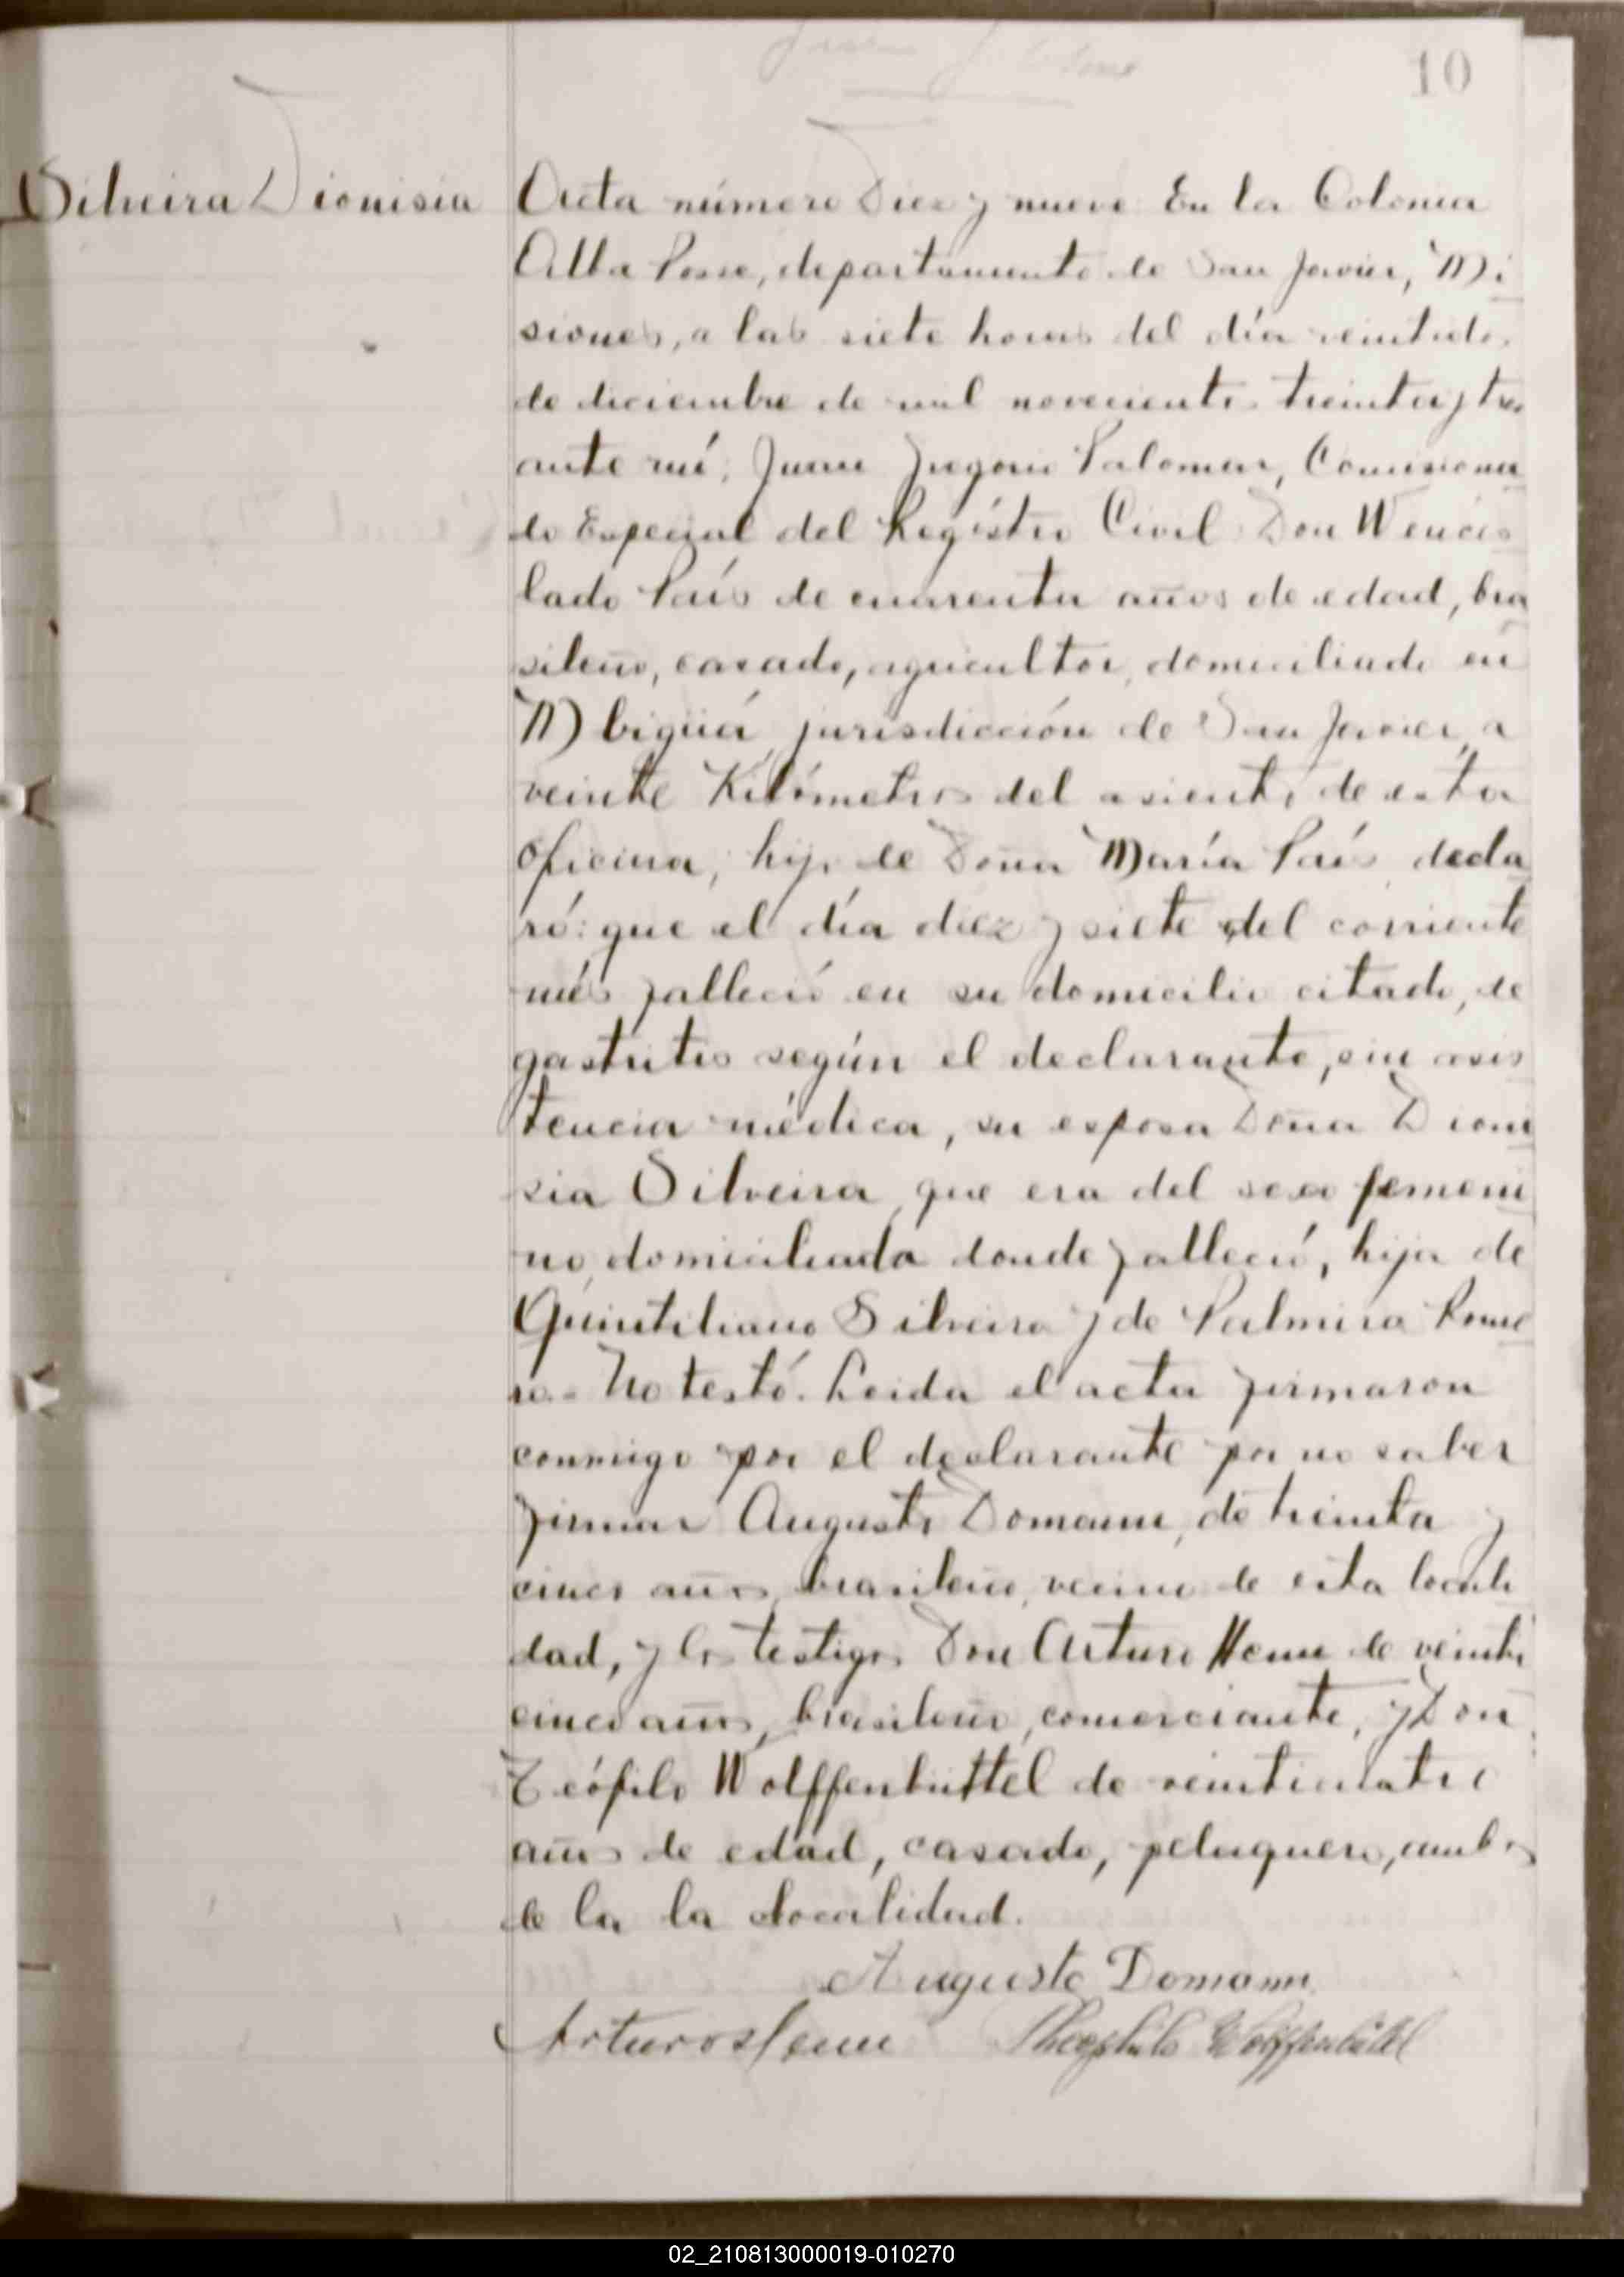 10
Silveira Dionisia
Acta número Diez y nueve En la Colonia
Alba Posse, departamento de San Javier, Mi
siones, a las siete horas del día veintidos
de diciembre de mil novecientos treinta y tres
ante mí, Juan Gregorio Palomar, Comisiona
do Especial del Registro Civil Don Wences
lado País de cuarenta años de edad, bra
sileño, casado, agricultor, domiciliado en
Mbiguá, jurisdicción de San Javier, a
veinte Kilómetros del asiento de esta
oficina, hijo de Doña María País, decla
ró: que el día diez y siete del corriente
més falleció en su domicilio citado, de
gastritis según el declarante, sin asis
tencia médica, su esposa Doña Dioni
sia Silveira, que era del sexo femeni
no, domiciliada donde falleció, hija de
Quintiliano Silveira y de Palmira Rome
ro.- No testó. Leida el acta firmaron
conmigo por el declarante por no saber
firmar Augusto Domann, de treinta y
cinco años, brasileño, vecino de esta locali
dad, y los testigos Don Arturo Henn de veinti
cinco años, brasileño, comerciante, y Don
Teófilo Wolffenbüttel de veinticuatro
años de edad, casado, peluquero, ambos
de la la localidad.
Augusto Domann
Arturo Henn Theophilo Wolffenbüttel
02_210813000019-010270